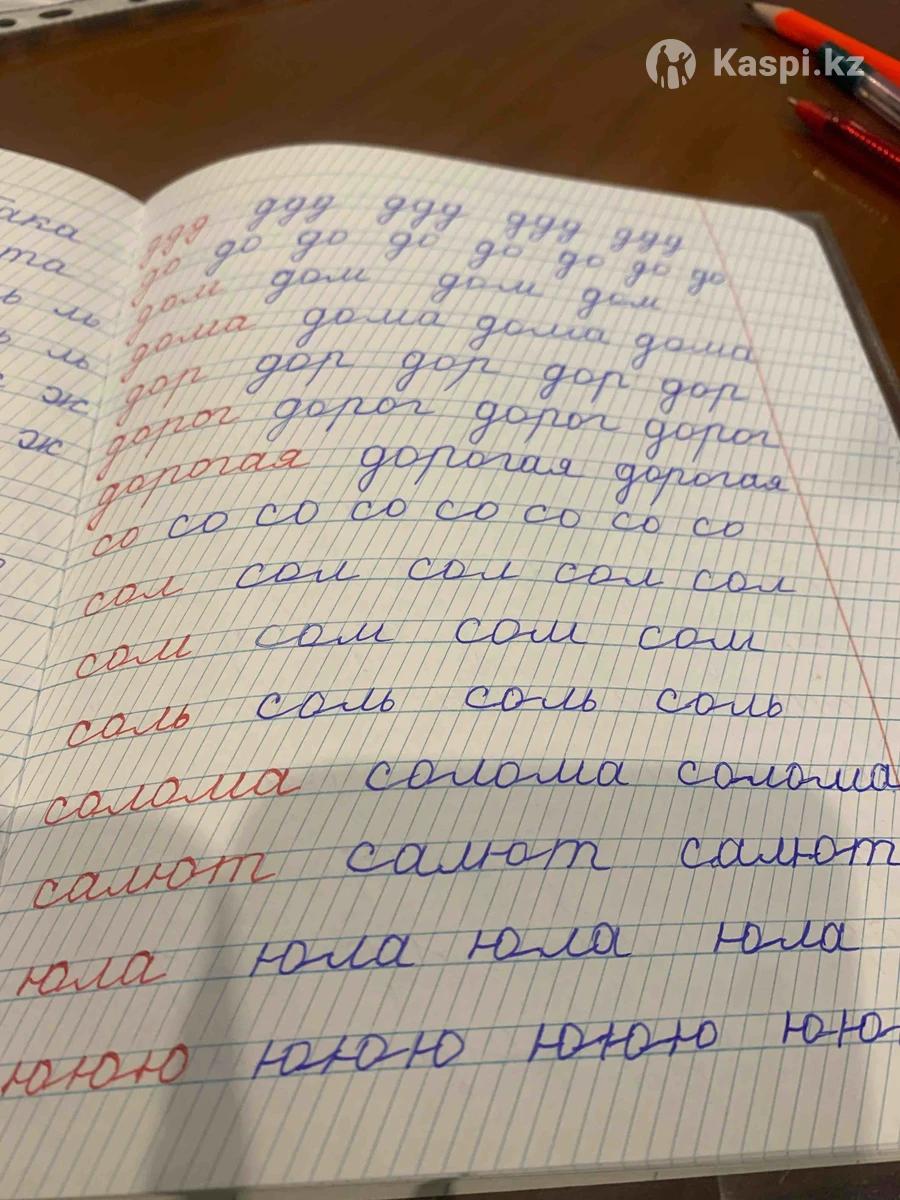 Kaspi.kz
та
ь ль
ь ль
ж
ж
ддд ддд ддд ддд ддд
до до до до до до до до
дом дом дом дом
дома дома дома дома
дор дор дор дор дор
дорог дорог дорог дорог
дорогая дорогая дорогая
со со со со со со со со
сол сол сол сол сол
сом сом сом сом
соль соль соль соль
солома солома солома
салют салют салют
юла юла юла юла
ююю ююю ююю юю